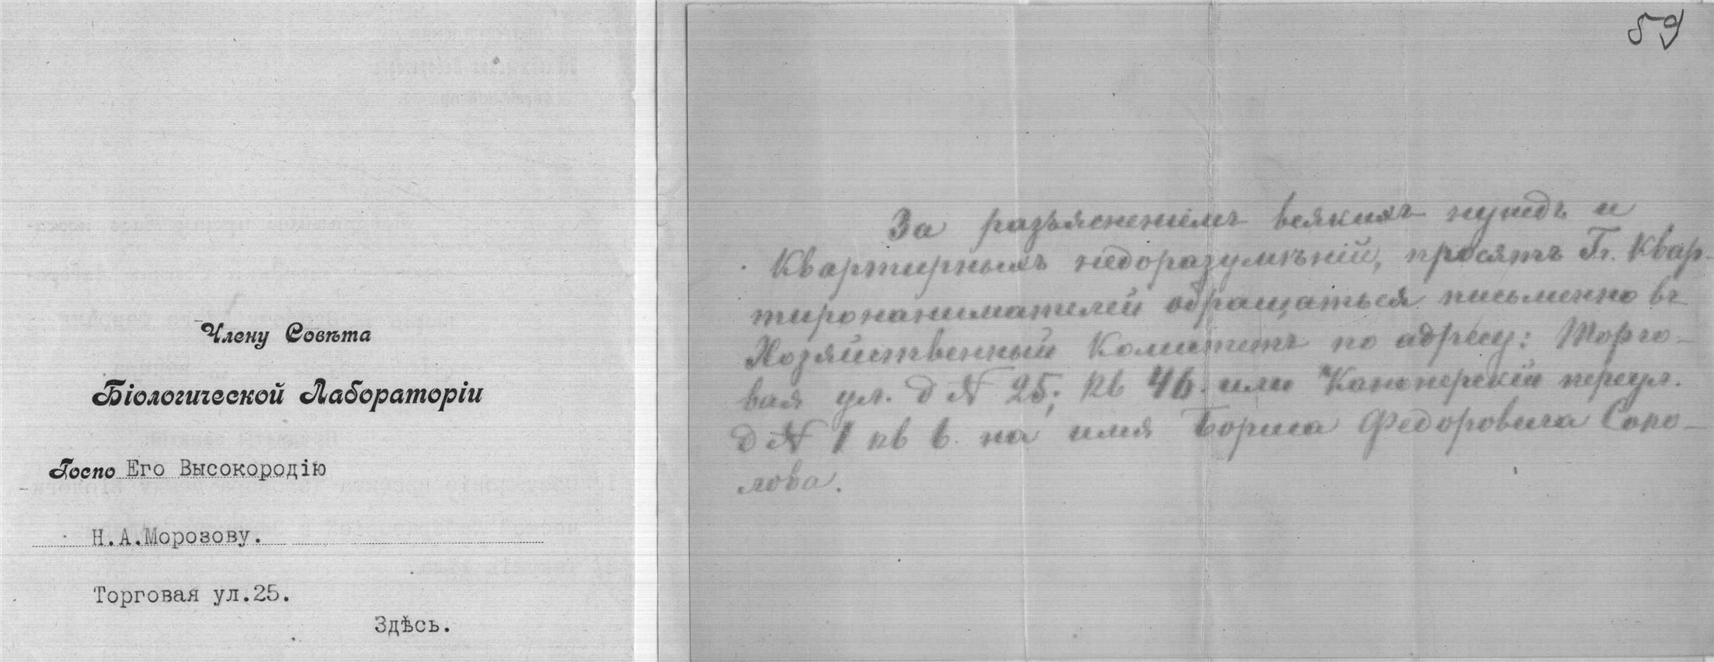 Члену Совѣта
Біологической Лабораторіи
Госпо Его Высокородію
Н.А.Морозову.
Торговая ул.25.
Здѣсь.
59
За разъясненіемъ всякихъ нуждъ и
квартирныхъ недоразумѣній, просятъ Гг. Квар-
тиронанимателей обращаться письменно въ
Хозяйственный Комитетъ по адресу: Торго-
вая ул. д № 25; кв 46. или Канонерскій переул.
д № 1 кв 6. на имя Бориса Федоровича Соко-
лова.